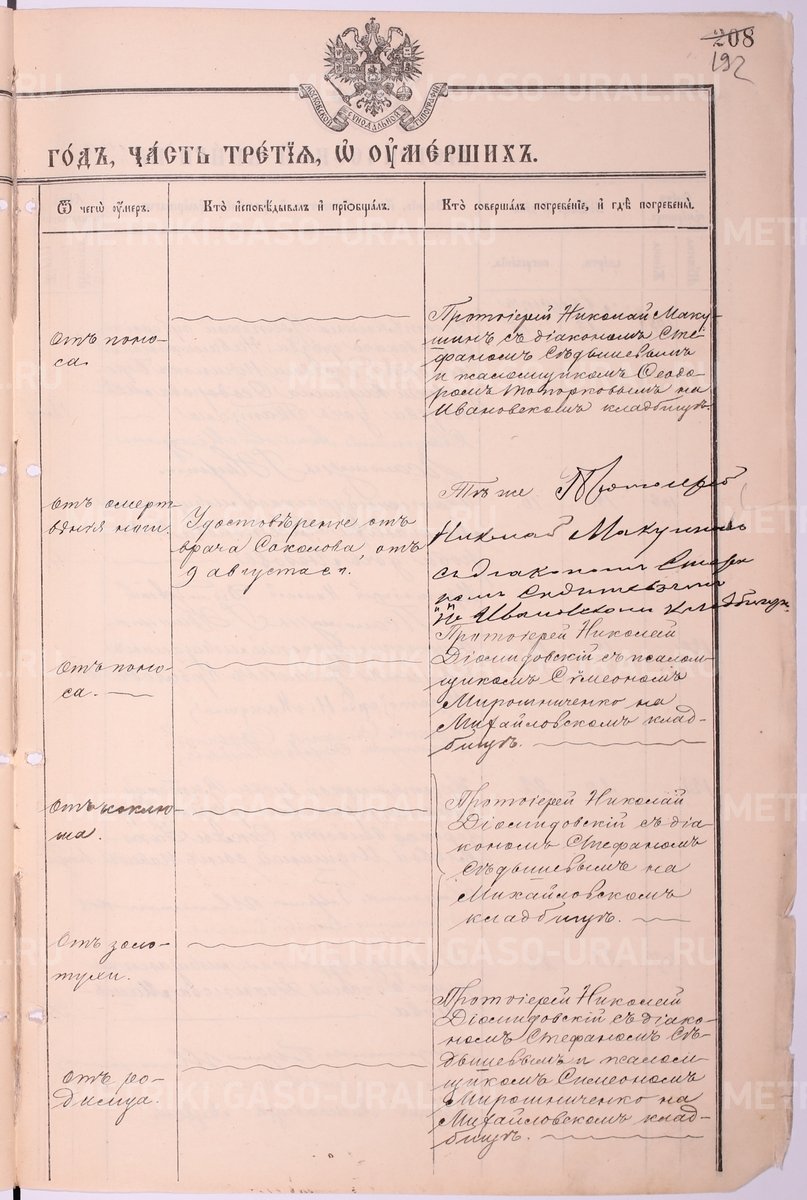 208
192
МОСКОВСКОЙ СѴНОДАЛЬНОЙ ТИПОГРАФІИ
ГОДЪ, ЧАСТЬ ТРЕТІЯ, Ѡ ОУМЕРШИХЪ.
Ѿ чегѡ оумеръ.
Кто исповѣдывалъ и пріобщалъ.
Кто совершалъ погребеніе, и гдѣ погребены.
Отъ поно-
са.
Протоіерей Николай Маку-
шинъ съ діакономъ Сте-
фаномъ Сѣдышевымъ
и псаломщикомъ Ѳеодо-
ромъ Топорковымъ на
Ивановскомъ кладбищѣ.
Отъ омертв
вѣнія ноги.
Удостовѣреніе отъ
врача Соколова, отъ
9 августа с. г.
Тѣ же Протоіерей
Николай Макушинъ
съ діакономъ Стефа
номъ Сѣдышевымъ
на Ивановскомъ кладбищѣ.
Отъ поно-
са.
Протоіерей Николай
Діомидовскій съ псалом-
щикомъ Сѵмеономъ
Мирошниченко на
Михайловскомъ клад-
бищѣ.
Отъ коклю-
ша.
Протоіерей Николай
Діомидовскій съ діа-
кономъ Стефаномъ
Сѣдышевымъ на
Михайловскомъ
кладбищѣ.
Отъ золо-
тухи.
Отъ ро-
димца.
Протоіерей Николай
Діомидовскій съ діако-
номъ Стефаномъ Сѣ-
дышевымъ и псалом-
щикомъ Симеономъ
Мирошниченко на
Михайловскомъ клад-
бищѣ.
METRIKI.GASO-URAL.RU